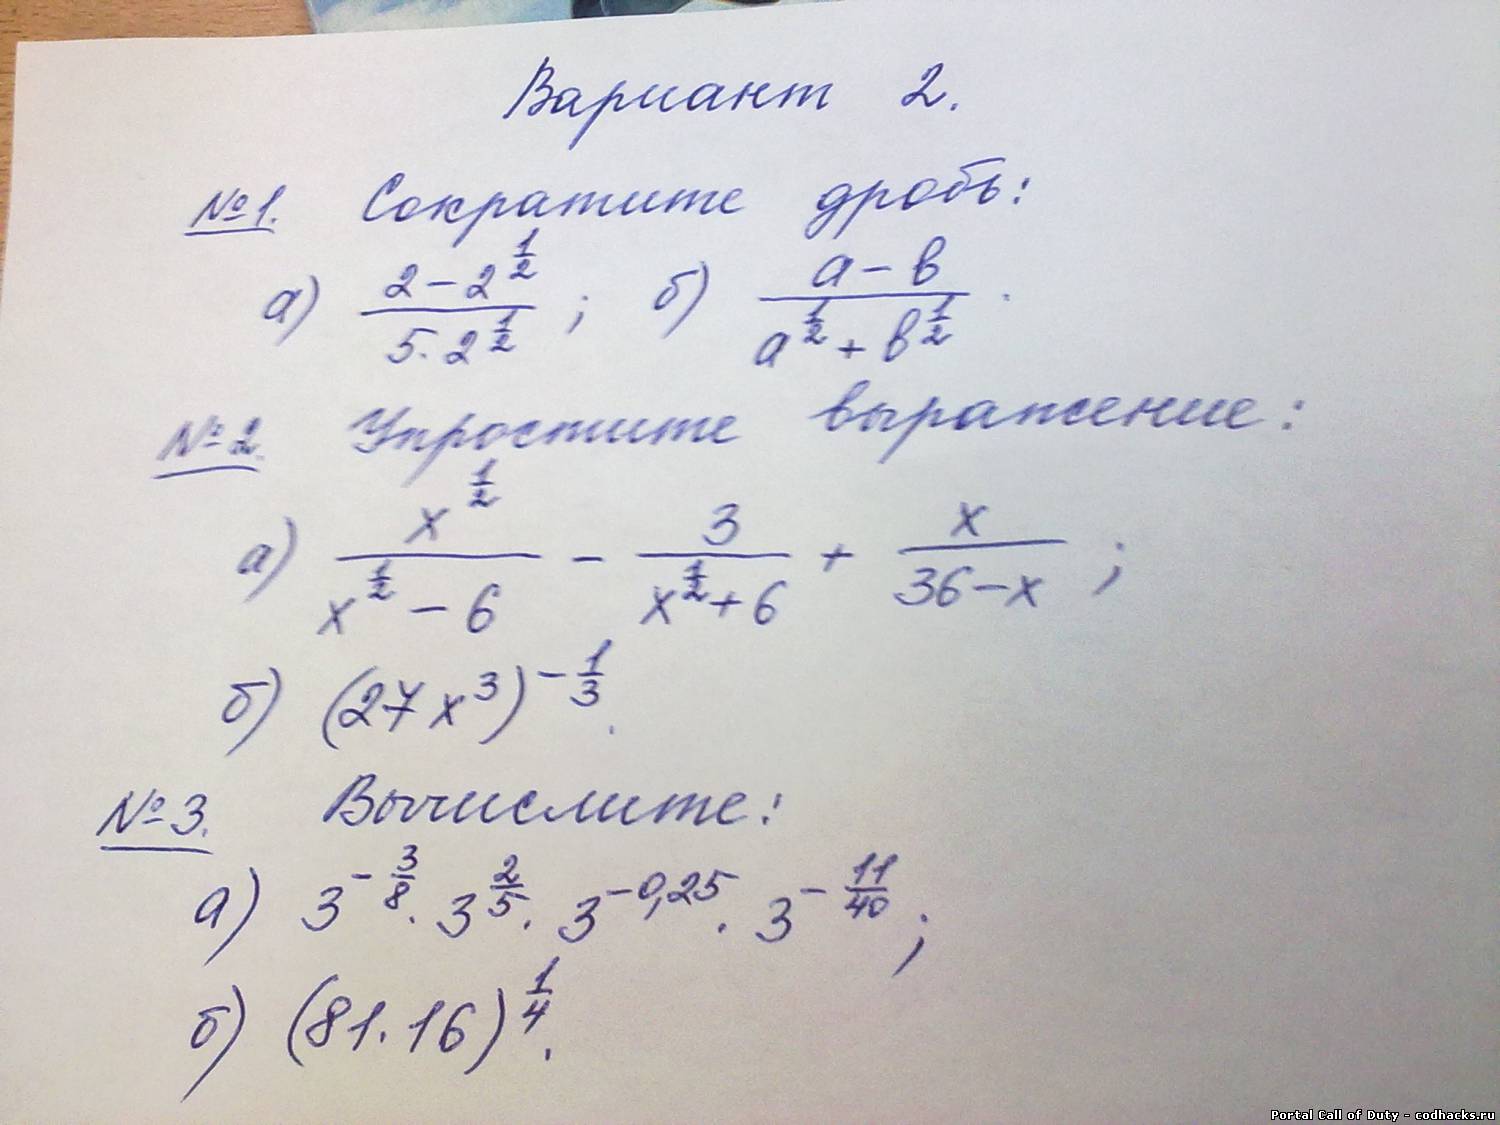 Вариант 2.
№1. Сократите дробь:
а) (2 − 2^(1/2)) / (5·2^(1/2)); б) (а − в) / (а^(1/2) + в^(1/2)).
№2. Упростите выражение:
а) x^(1/2) / (x^(1/2) − 6) − 3 / (x^(1/2) + 6) + x / (36 − x);
б) (27x³)^(−1/3).
№3. Вычислите:
а) 3^(−3/8) · 3^(2/5) · 3^(−0,25) · 3^(−11/40);
б) (81·16)^(1/4).
Portal Call of Duty - codhacks.ru